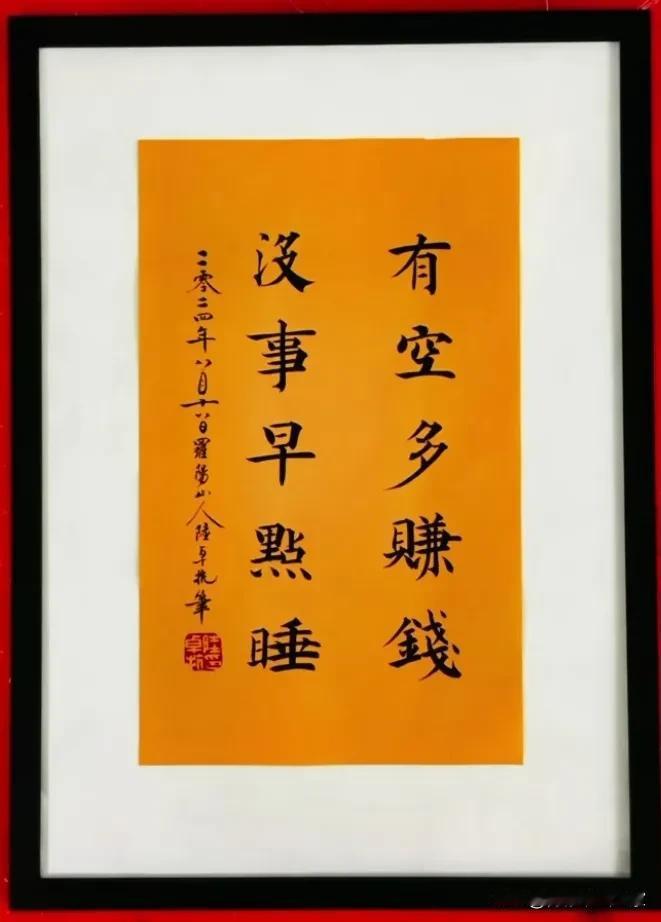 有空多賺錢
沒事早點睡
二零二四年八月十八日羅陽山人陸卓抗筆